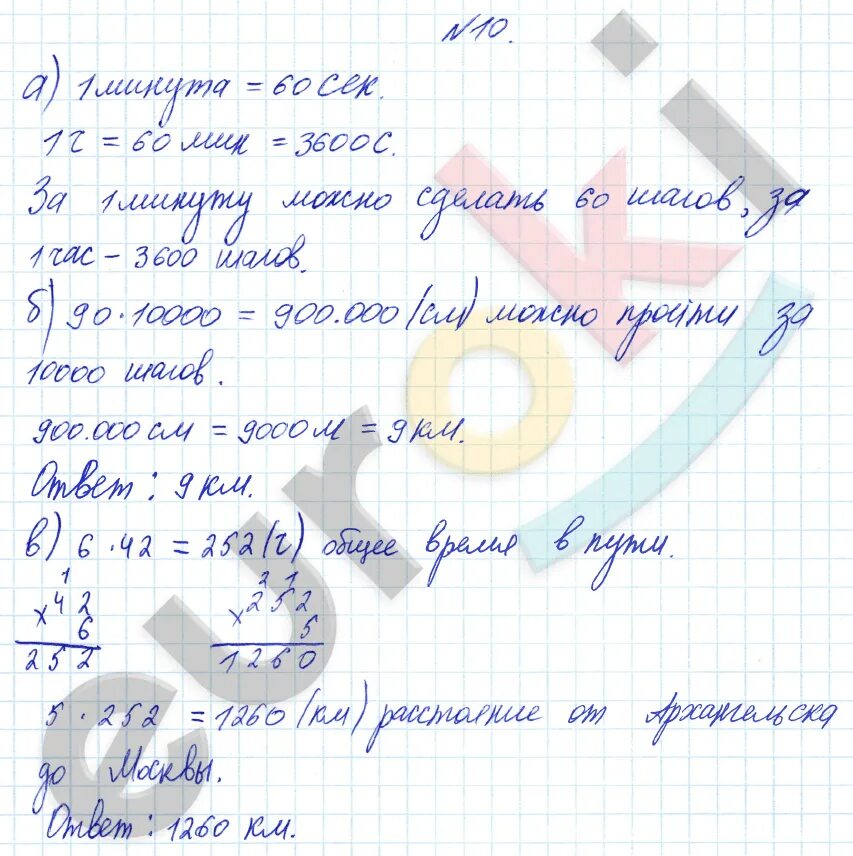 №10.
а) 1 минута = 60 сек.
1 ч = 60 мин = 3600 с.
За 1 минуту можно сделать 60 шагов, за
1 час – 3600 шагов.
б) 90 · 10000 = 900.000 (см) можно пройти за
10000 шагов.
900.000 см = 9000 м = 9 км.
Ответ: 9 км.
в) 6 · 42 = 252 (ч) общее время в пути.
1 2 1
× 42 × 252
6 5
252 1260
5 · 252 = 1260 (км) расстояние от Архангельска
до Москвы.
Ответ: 1260 км.
euroki